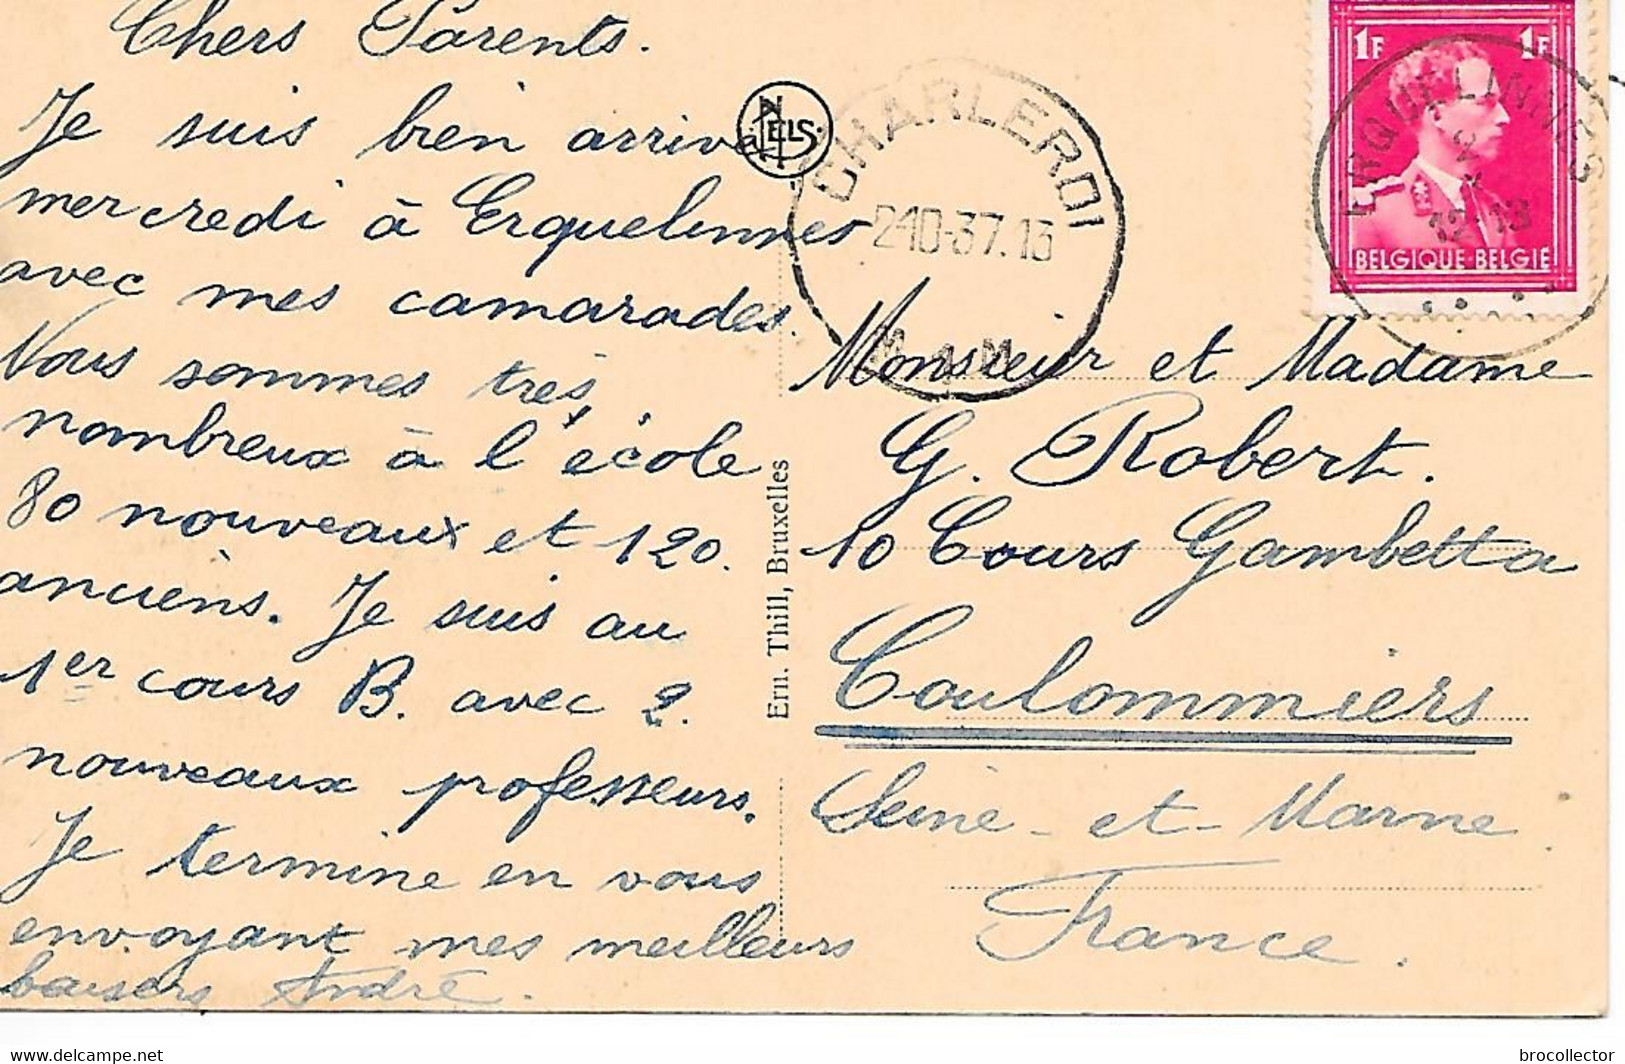 Chers Parents.
Je suis bien arrivé
mercredi à Erquelinnes
avec mes camarades.
Nous sommes très
nombreux à l'école
80 nouveaux et 120.
anciens. Je suis au
1er cours B. avec 2.
nouveaux professeurs.
Je termine en vous
envoyant mes meilleurs
baisers André.
NELS
Ern. Thill, Bruxelles
CHARLEROI
2 10-37.13
1F 1F
BELGIQUE-BELGIË
ERQUELINNES
12-13
Monsieur et Madame
G. Robert.
10 Cours Gambetta
Coulommiers
Seine-et-Marne
France.
www.delcampe.net
brocollector